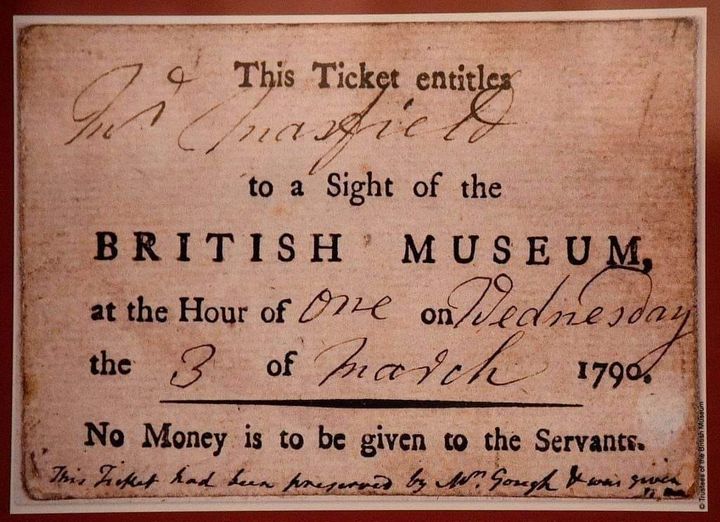 This Ticket entitles
Mrs Maxfield
to a Sight of the
BRITISH MUSEUM,
at the Hour of One on Wednesday
the 3 of March 1790.
No Money is to be given to the Servants.
This Ticket had been preserved by Mrs. Gough & was given
© Trustees of the British Museum